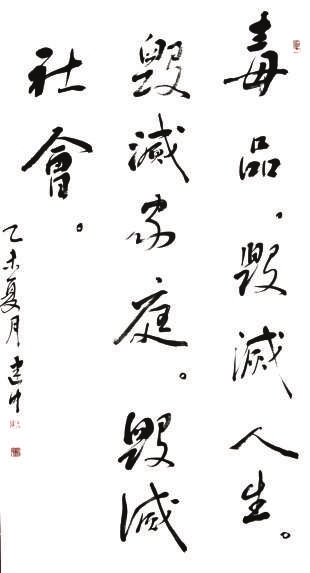 毒品。毀滅人生。
毀滅家庭。毀滅
社會。
乙未夏月建中